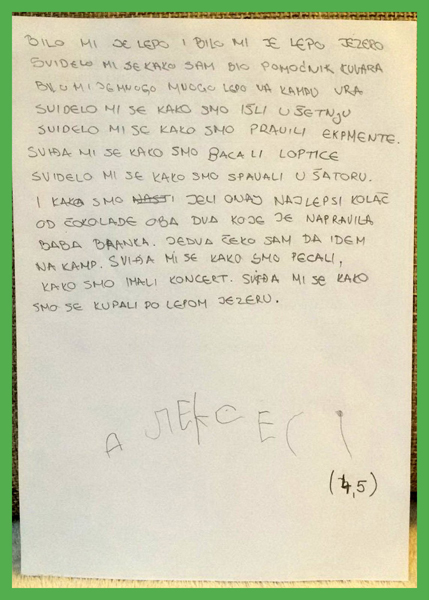 BILO MI JE LEPO I BILO MI JE LEPO JEZERO
SVIDELO MI SE KAKO SAM BIO POMOĆNIK KUVARA
BILO MI JE MNOGO MNOGO LEPO NA KAMPU URA
SVIDELO MI SE KAKO SMO IŠLI U ŠETNJU
SVIDELO MI SE KAKO SMO PRAVILI EKPMENTE.
SVIĐA MI SE KAKO SMO BACALI LOPTICE
SVIDELO MI SE KAKO SMO SPAVALI U ŠATORU.
I KAKO SMO JELI ONAJ NAJLEPSI KOLAČ
OD ČOKOLADE OBA DVA KOJE JE NAPRAVILA
BABA BRANKA. JEDVA ČEKO SAM DA IDEM
NA KAMP. SVIĐA MI SE KAKO SMO PECALI,
KAKO SMO IMALI KONCERT. SVIĐA MI SE KAKO
SMO SE KUPALI PO LEPOM JEZERU.
(4,5)